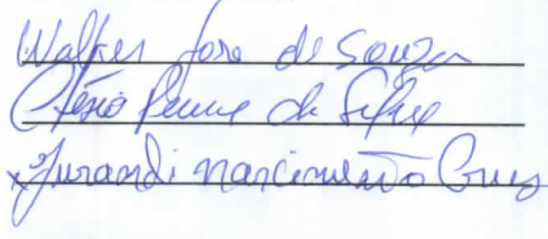 Walter José de Souza
da Silva
Jurandi Nascimento Cruz